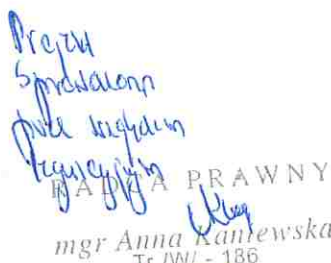 Projekt
Sprawdzono
pod względem
RADCA PRAWNY
mgr Anna Kaniewska
Tr /W/ - 186